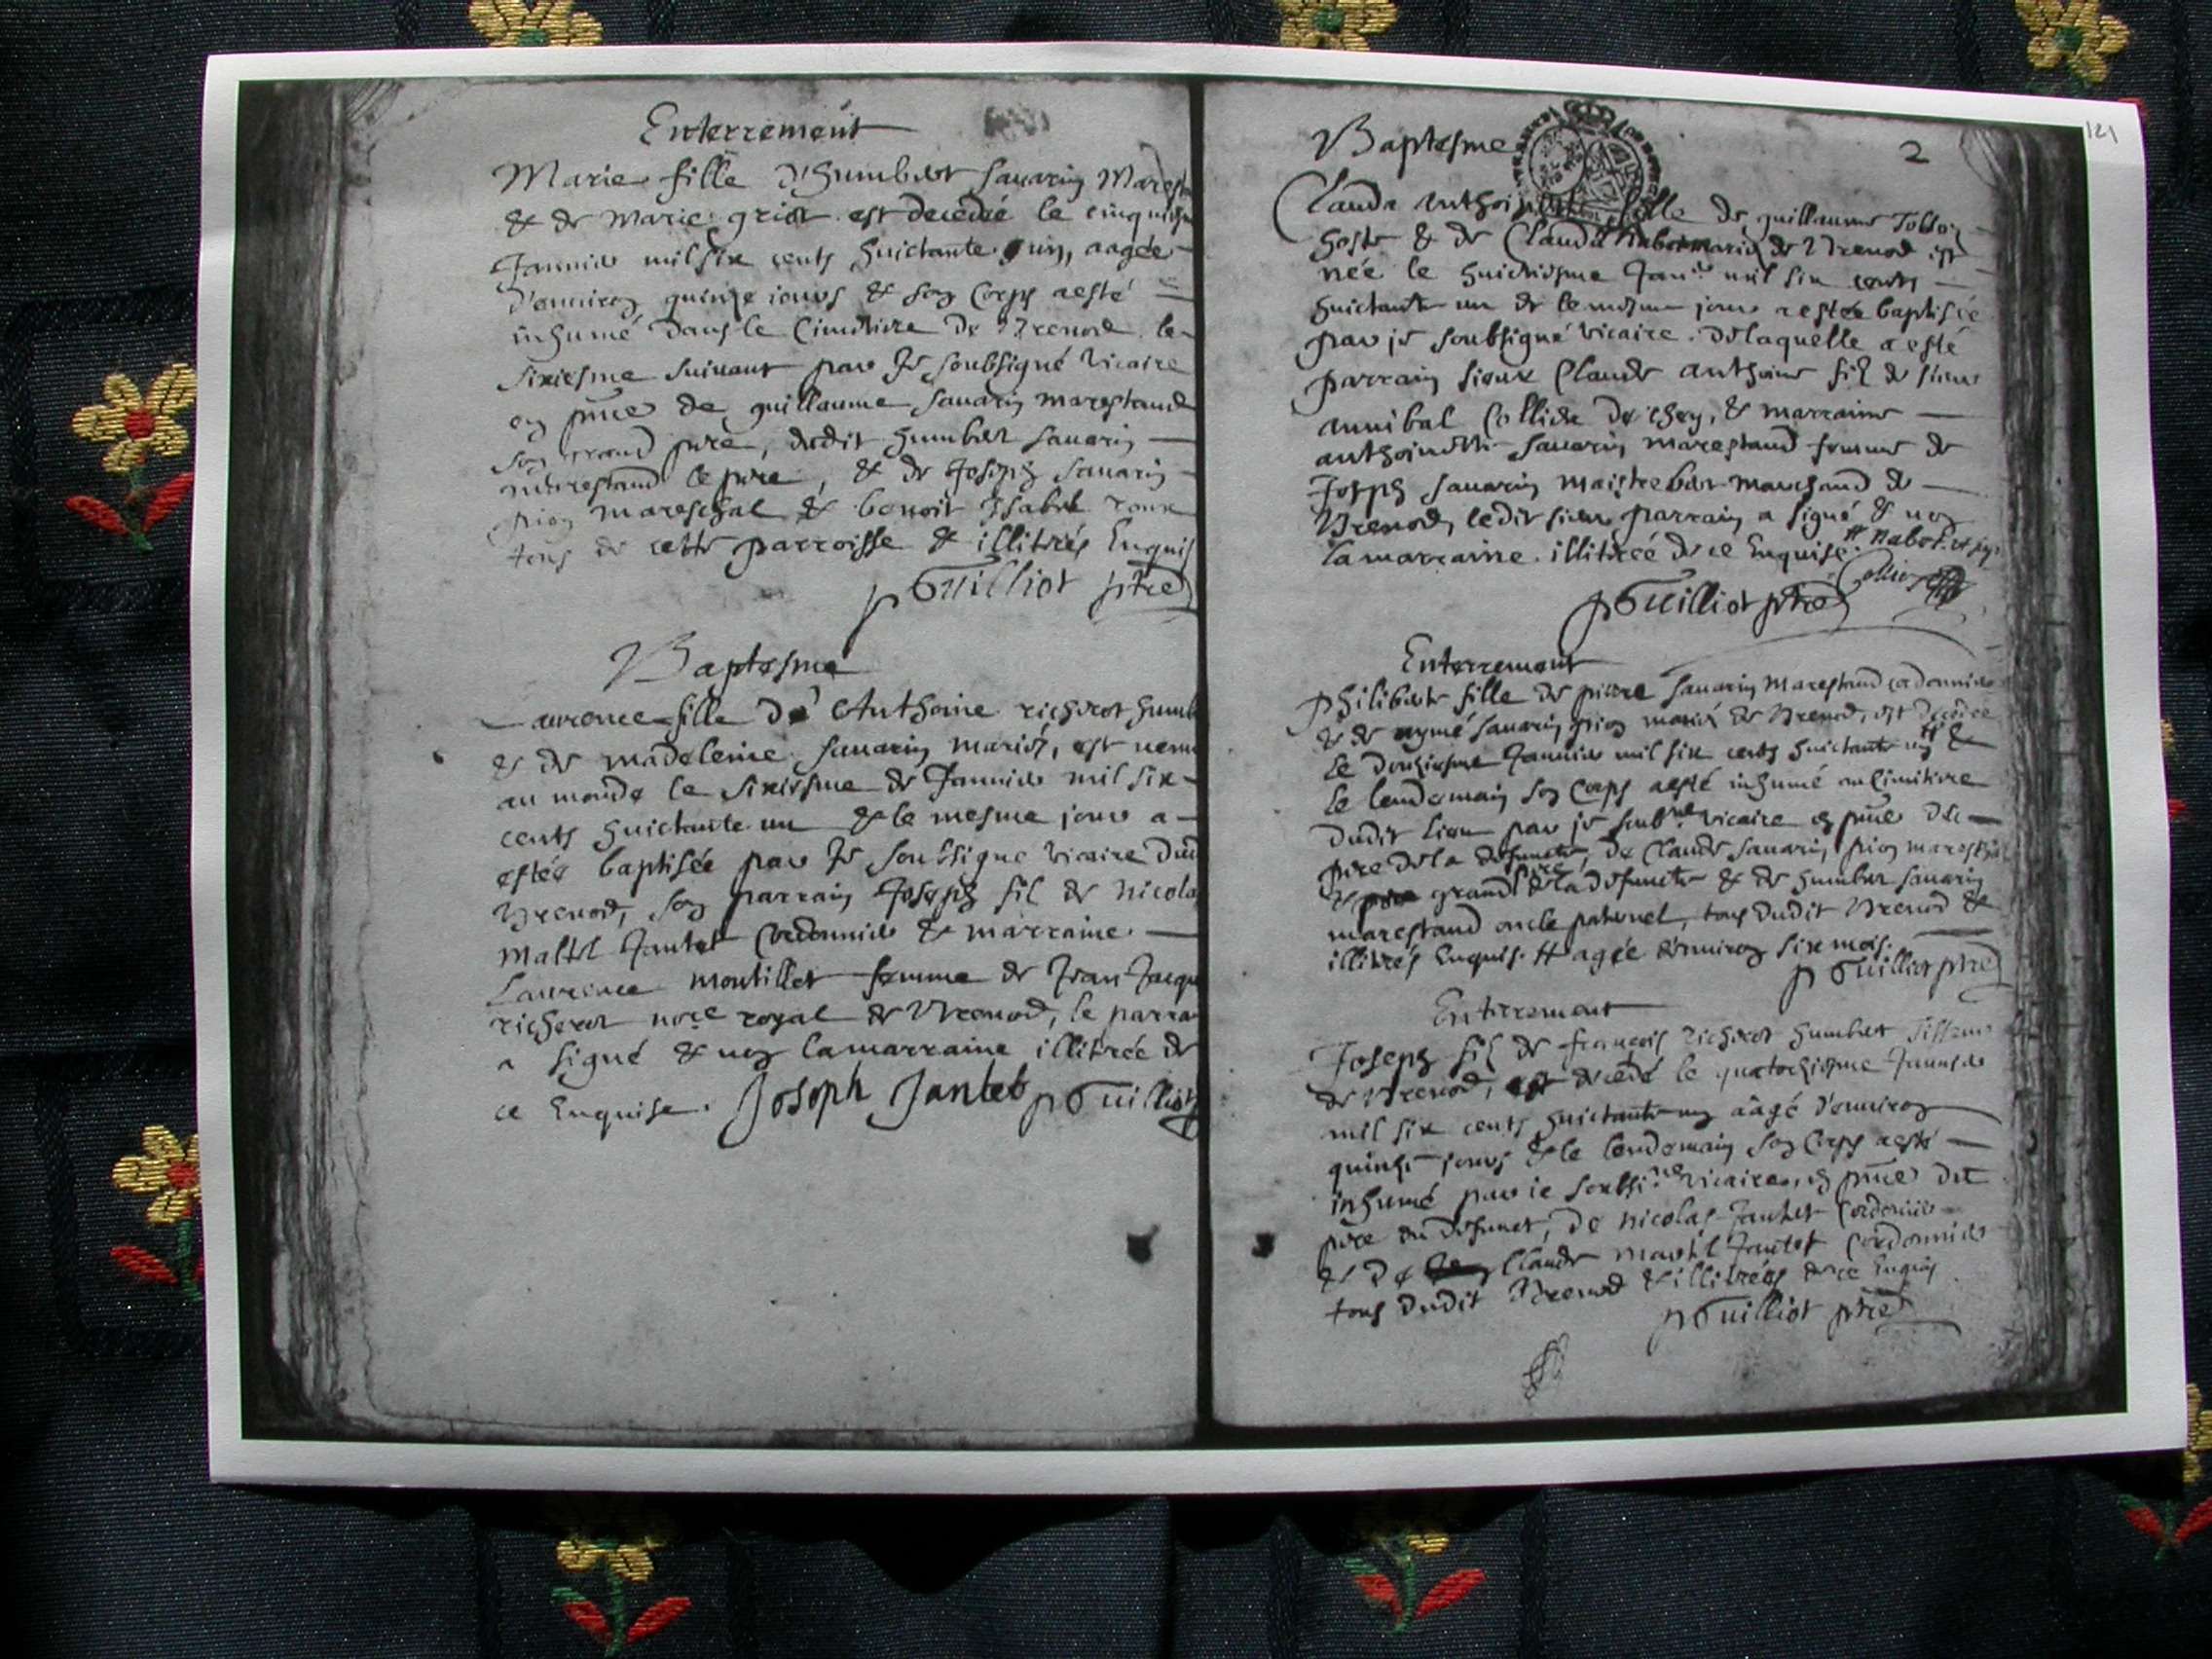 Enterrement
Marie fille d'humbert sauarin Marest
& de Marie griot est decedée le cinquies
Januier mil six cents huictante un, aagée
d'enuiron quinze iours & son Corps a esté
inhumé dans le Cimitiere de Brenod le
sixiesme suiuant par Je soubsigné vicaire
en pñce de guillaume sauarin marestand
son grand pere, dudit humbert sauarin
marestand le pere, & de Joseph sauarin
pion mareschal & benoit Isabel
tous de cette parroisse & illiterés Enquis
p Guilliot ptre
Baptesme
Laurence fille de Anthoine richerot humb
& de madeleine sauarin mariés, est venu
au monde le sixiesme de Januier mil six
cents huictante un & le mesme jour a
estée baptisée par Je soubsigné vicaire dud
Brenod, son parrain Joseph fil de nicola
Jantet Cordonnier & marraine
Laurence montillet femme de Jean Jacqu
richerot nore royal de Brenod, le parra
a signé & non la marraine illiterée de
ce Enquise. Joseph Jantet p Guilliot
121
2
Baptesme
Clauda Anthoinette fille de guillaume
hoste & de Clauda mariés de Brenod est
née le huictiesme Janr mil six cents
huictante un & le mesme jour a estée baptisée
par je soubsigné vicaire. de laquelle a esté
parrain sieur Claude anthoine fil de sieur
annibal Collier de & marraine
anthoinette sauarin marestand femme de
Joseph sauarin maistrebert marchand de
Brenod, ledit sieur parrain a signé & non
la marraine illiterée de ce Enquise. # nabot
p Guilliot ptre Collier
Enterrement
philiberte fille de pierre sauarin Marestand cordonnier
& de aymé sauarin pion mariés de Brenod, est decedée
le douziesme Januier mil six cents huictante un # &
le lendemain son Corps a esté inhumé au Cimitiere
dudit lieu par je soubné vicaire en pñce du
pere de la defuncte, de Claude sauarin pion mareschal
& grand pere de la defuncte & de humbert sauarin
marestand oncle paternel, tous dudit Brenod &
illiterés Enquis. # agée d'enuiron six mois.
p Guilliot ptre
Enterrement
Joseph fil de francois richerot humbert
de Brenod, est decedé le quatorziesme Januier
mil six cents huictante un aâgé d'enuiron
quinze jours & le lendemain son Corps a esté
inhumé par ie soubsi.né vicaire, en pñce du
pere du defunct, de nicolas Jantet Cordonnier
& de Claude Jantet Cordonnier
tous dudit Brenod & illiterés de ce Enquis
p Guilliot ptre